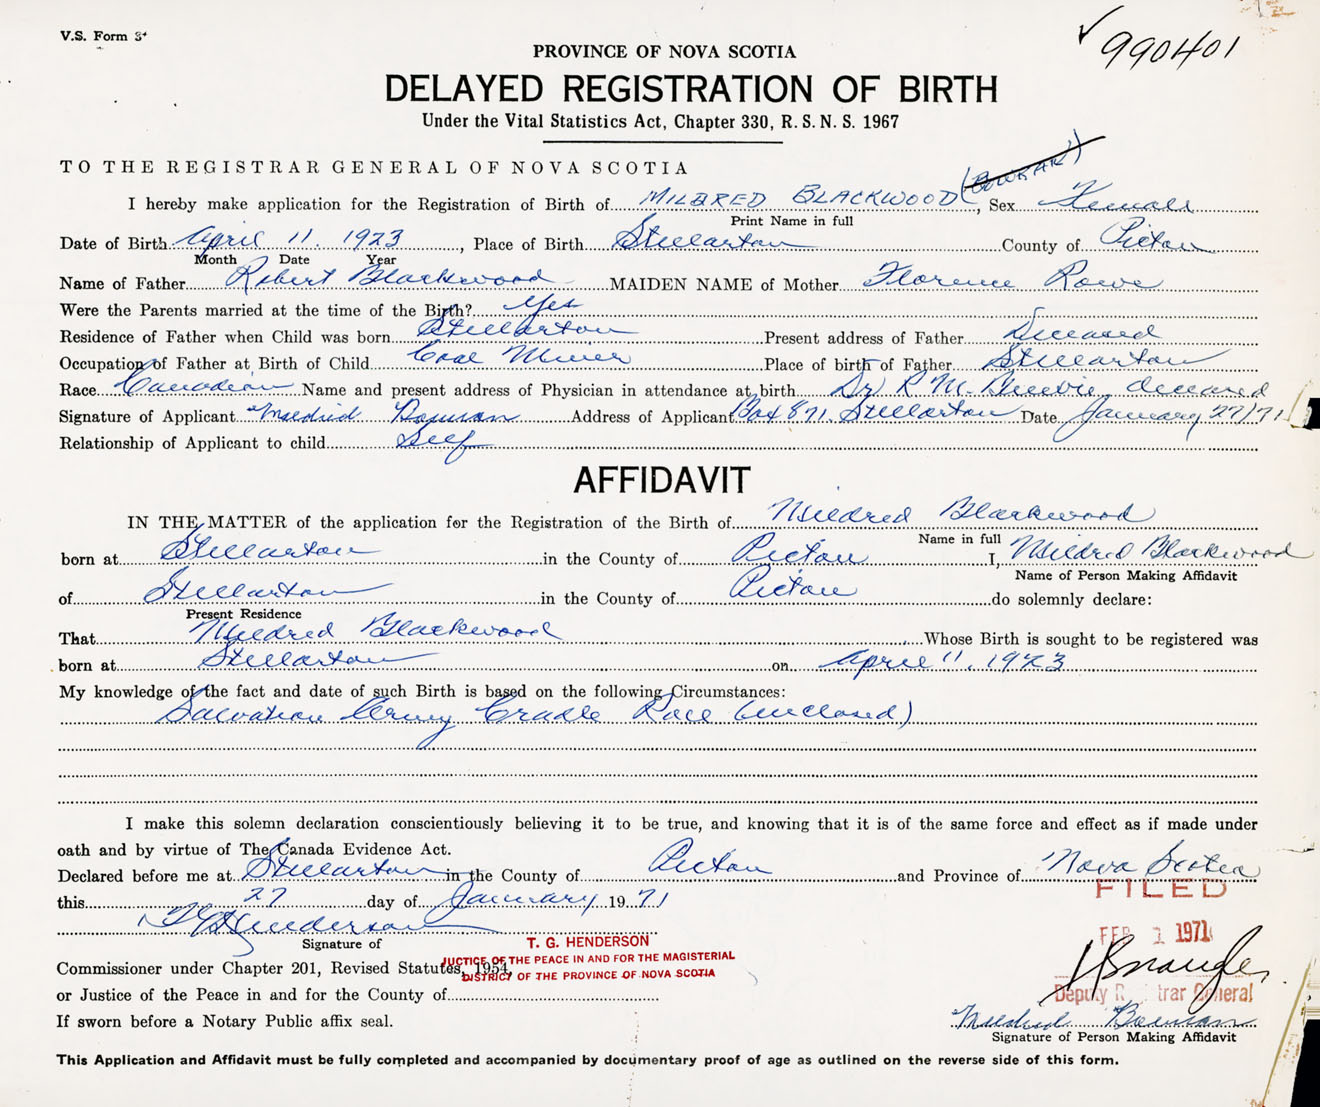 V.S. Form 3
990401
PROVINCE OF NOVA SCOTIA
DELAYED REGISTRATION OF BIRTH
Under the Vital Statistics Act, Chapter 330, R. S. N. S. 1967
TO THE REGISTRAR GENERAL OF NOVA SCOTIA
I hereby make application for the Registration of Birth of MILDRED BLACKWOOD, Sex Female
Print Name in full
Date of Birth April 11. 1923, Place of Birth Stellarton County of Pictou
Month Date Year
Name of Father Robert Blackwood MAIDEN NAME of Mother Florence Rowe
Were the Parents married at the time of the Birth? Yes
Residence of Father when Child was born Stellarton Present address of Father Deceased
Occupation of Father at Birth of Child Coal Miner Place of birth of Father Stellarton
Race Canadian Name and present address of Physician in attendance at birth Dr R M. deceased
Signature of Applicant Mildred Bowman Address of Applicant Box 871. Stellarton Date January 27/71
Relationship of Applicant to child Self
AFFIDAVIT
IN THE MATTER of the application for the Registration of the Birth of Mildred Blackwood
Name in full
born at Stellarton in the County of Pictou I, Mildred Blackwood
Name of Person Making Affidavit
of Stellarton in the County of Pictou do solemnly declare:
Present Residence
That Mildred Blackwood Whose Birth is sought to be registered was
born at Stellarton on April 11. 1923
My knowledge of the fact and date of such Birth is based on the following Circumstances:
Salvation Army Cradle Roll (enclosed)
I make this solemn declaration conscientiously believing it to be true, and knowing that it is of the same force and effect as if made under
oath and by virtue of The Canada Evidence Act.
Declared before me at Stellarton in the County of Pictou and Province of Nova Scotia
FILED
this 27 day of January 1971
FEB 1 1971
T G Henderson
Signature of
T. G. HENDERSON
JUSTICE OF THE PEACE IN AND FOR THE MAGISTERIAL
DISTRICT OF THE PROVINCE OF NOVA SCOTIA
Commissioner under Chapter 201, Revised Statutes, 1954,
or Justice of the Peace in and for the County of
Deputy Registrar General
If sworn before a Notary Public affix seal.
Mildred Bowman
Signature of Person Making Affidavit
This Application and Affidavit must be fully completed and accompanied by documentary proof of age as outlined on the reverse side of this form.